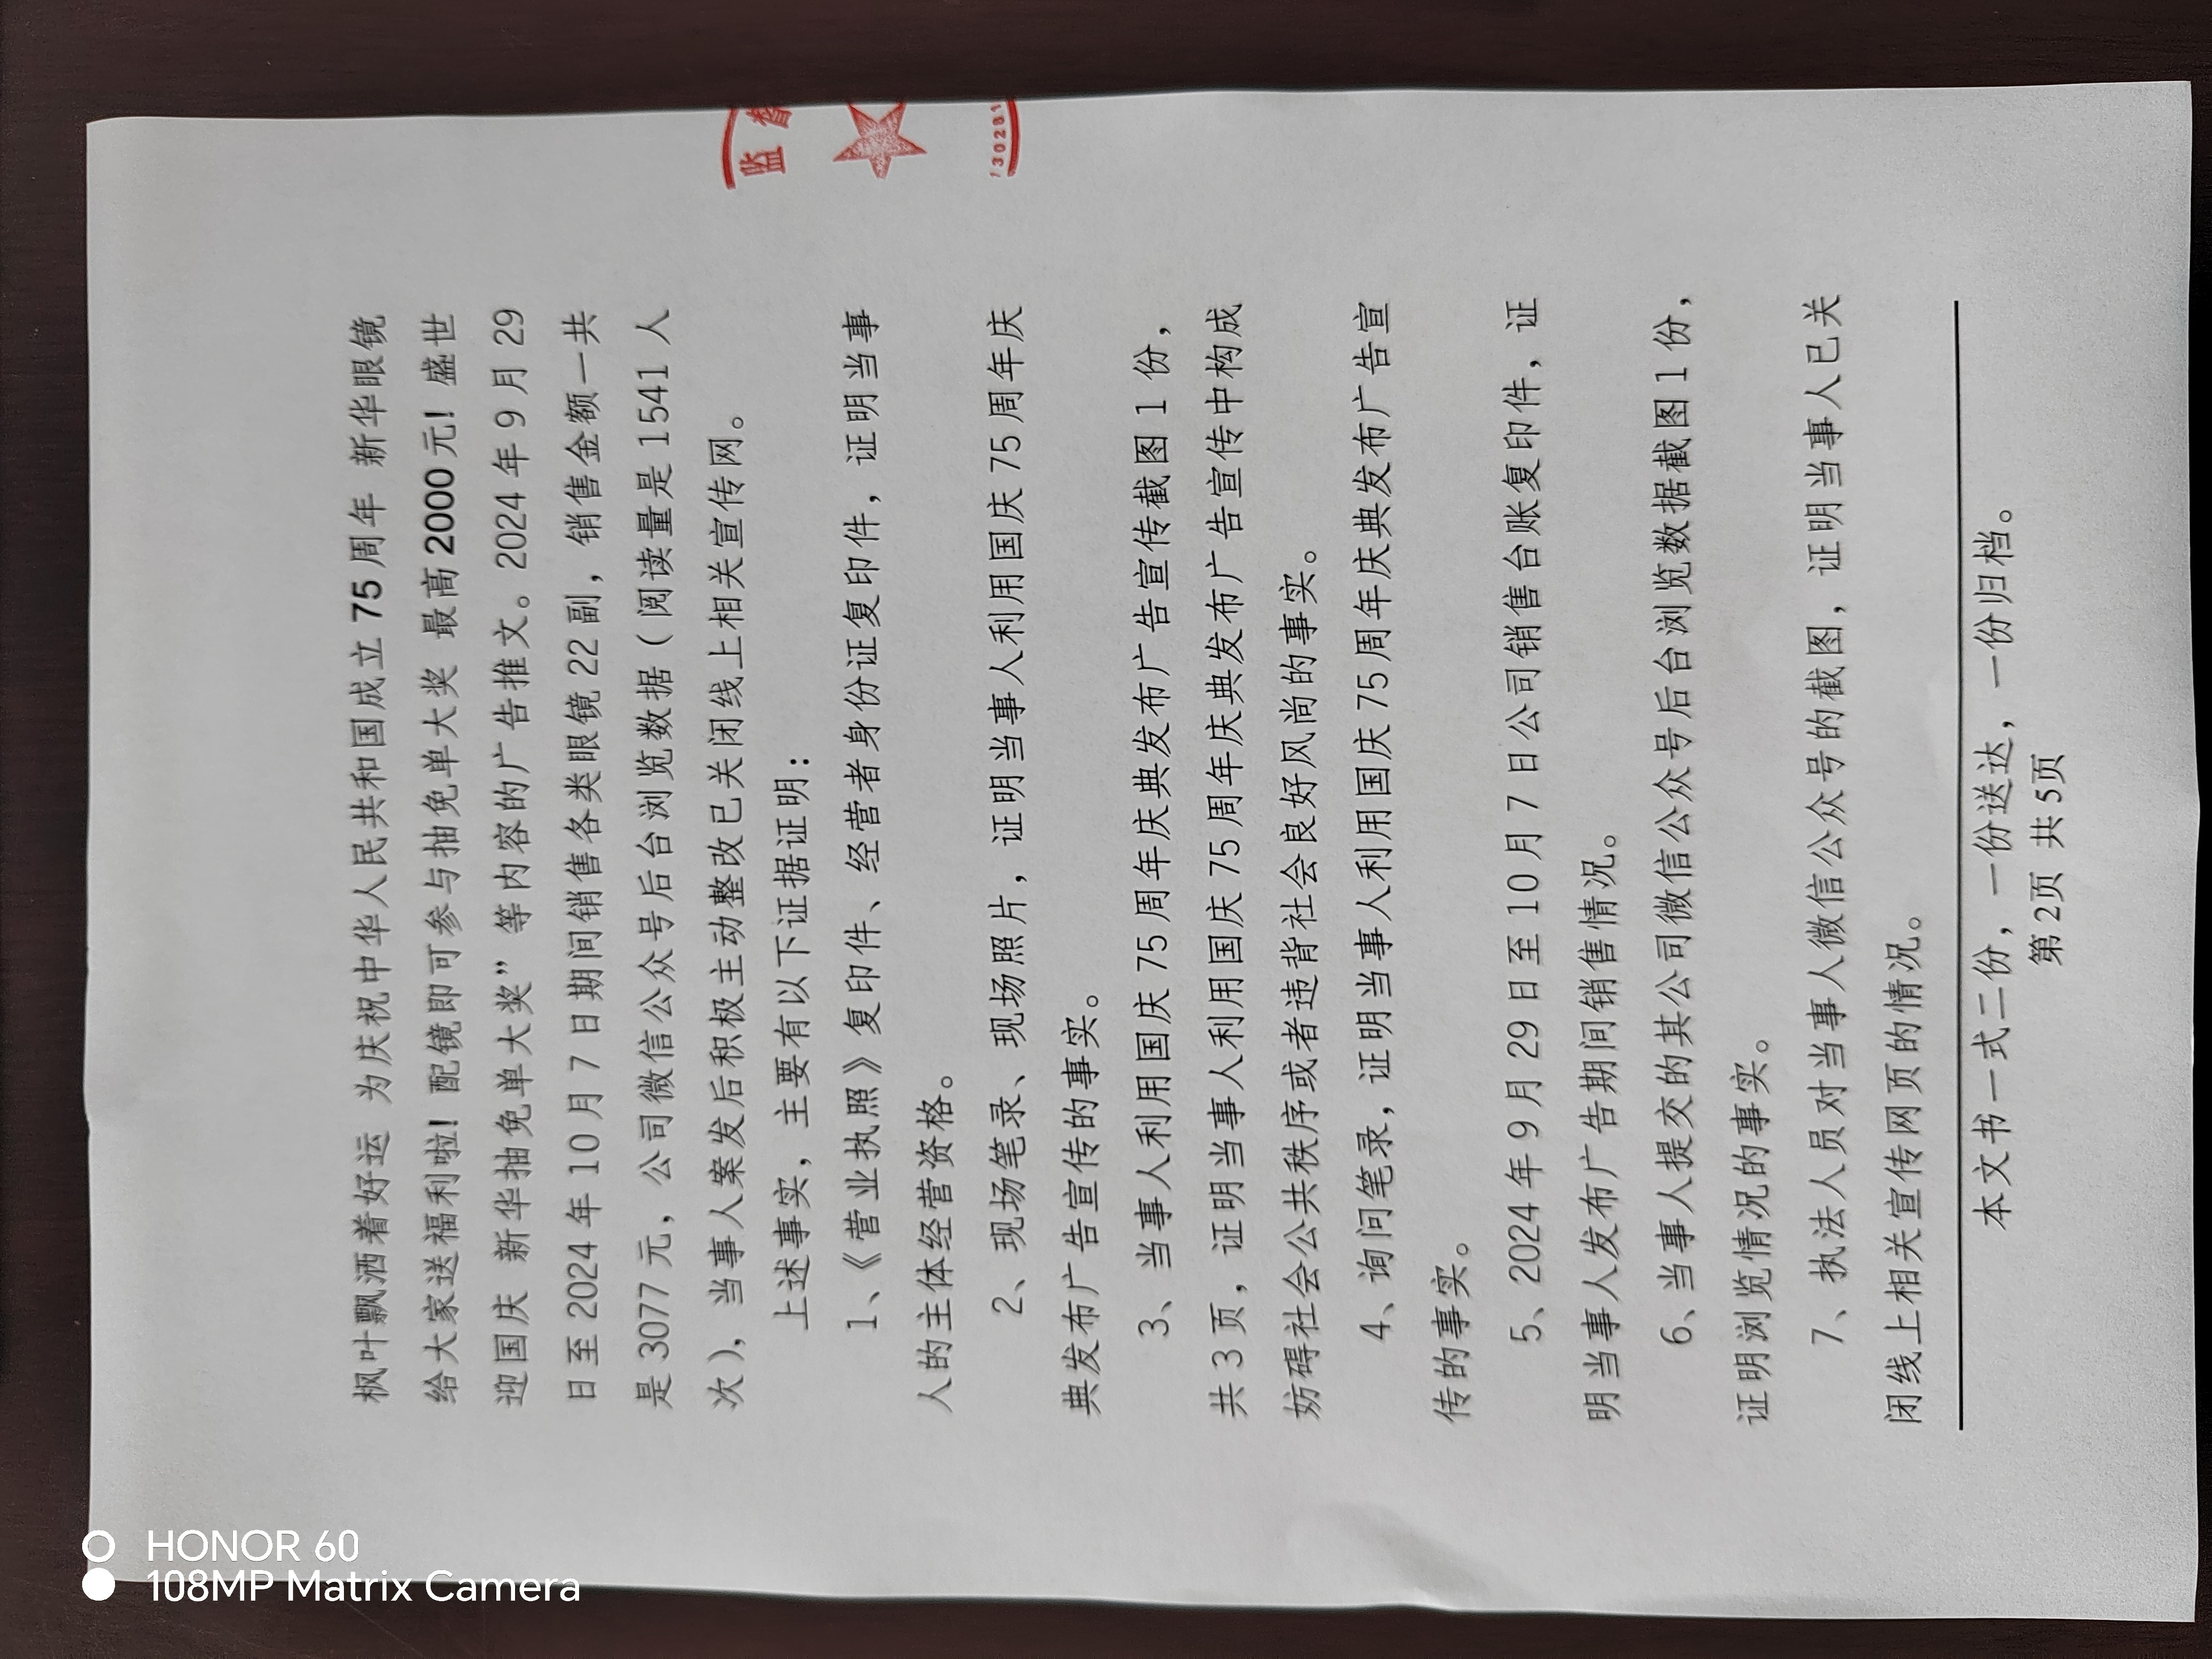 枫叶飘洒着好运 为庆祝中华人民共和国成立 75 周年 新华眼镜
给大家送福利啦！配镜即可参与抽免单大奖 最高 2000 元！盛世
迎国庆 新华抽免单大奖”等内容的广告推文。2024 年 9 月 29
日至 2024 年 10 月 7 日期间销售各类眼镜 22 副，销售金额一共
是 3077 元，公司微信公众号后台浏览数据（阅读量是 1541 人
次），当事人案发后积极主动整改已关闭线上相关宣传网。
上述事实，主要有以下证据证明：
1、《营业执照》复印件、经营者身份证复印件，证明当事
人的主体经营资格。
2、现场笔录、现场照片，证明当事人利用国庆 75 周年庆
典发布广告宣传的事实。
3、当事人利用国庆 75 周年庆典发布广告宣传截图 1 份，
共 3 页，证明当事人利用国庆 75 周年庆典发布广告宣传中构成
妨碍社会公共秩序或者违背社会良好风尚的事实。
4、询问笔录，证明当事人利用国庆 75 周年庆典发布广告宣
传的事实。
5、2024 年 9 月 29 日至 10 月 7 日公司销售台账复印件，证
明当事人发布广告期间销售情况。
6、当事人提交的其公司微信公众号后台浏览数据截图 1 份，
证明浏览情况的事实。
7、执法人员对当事人微信公众号的截图，证明当事人已关
闭线上相关宣传网页的情况。
本文书一式二份，一份送达，一份归档。
第 2页 共 5页
监督
30281
HONOR 60
108MP Matrix Camera